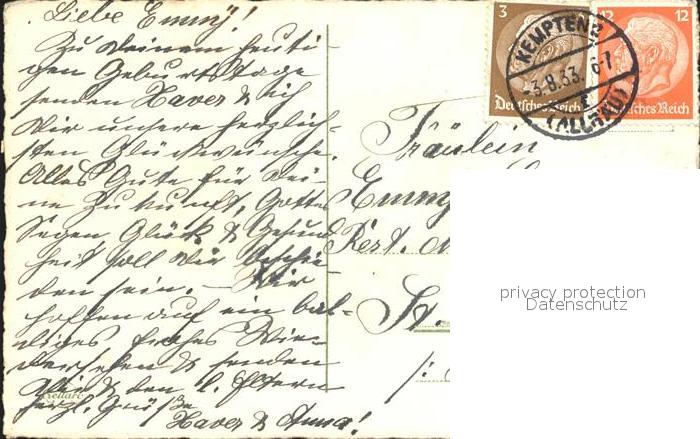 Liebe Emmy!
Zu Deinem heuti-
gen Geburtstage
senden Xaver & ich
Dir unsere herzlich-
sten Glückwünsche.
Alles Gute für Dei-
ne Zukunft, Gottes
Segen, Glück & Gesund
heit soll Dir beschie-
den sein. – Wir
hoffen auf ein bal-
diges frohes Wie-
dersehen & senden
Dir & den l. Eltern
herzl. Grüße
Xaver & Anna!
3
Deutsches Reich
12 12
sches Reich
KEMPTEN 2
3.8.33. 6-7
(ALLGÄU)
Fräulein
Emmy
Rest.
St.
privacy protection
Datenschutz